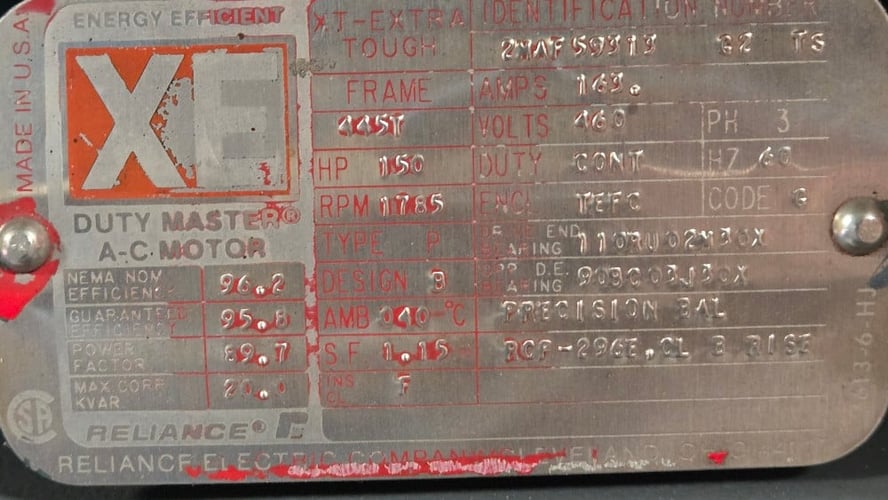 MADE IN U.S.A.
ENERGY EFFICIENT
XE
DUTY MASTER®
A-C MOTOR
NEMA NOM EFFICIENCY 96.2
GUARANTEED EFFICIENCY 95.8
POWER FACTOR 89.7
MAX CORR KVAR 20.0
RELIANCE®
XT-EXTRA TOUGH
IDENTIFICATION NUMBER
G2 TS
FRAME
AMPS 163.
445T
VOLTS 460 PH 3
HP 150
DUTY CONT HZ 60
RPM 1785
ENCL TEFC CODE G
TYPE P
DRIVE END BEARING 110RU02M30X
DESIGN B
OPP D.E. BEARING 90BC03J30X
AMB 040 °C
PRECISION BAL
S.F. 1.15
RCF-296E,CL B RISE
INS CL F
613-6-HJ
RELIANCE ELECTRIC COMPANY/CLEVELAND,